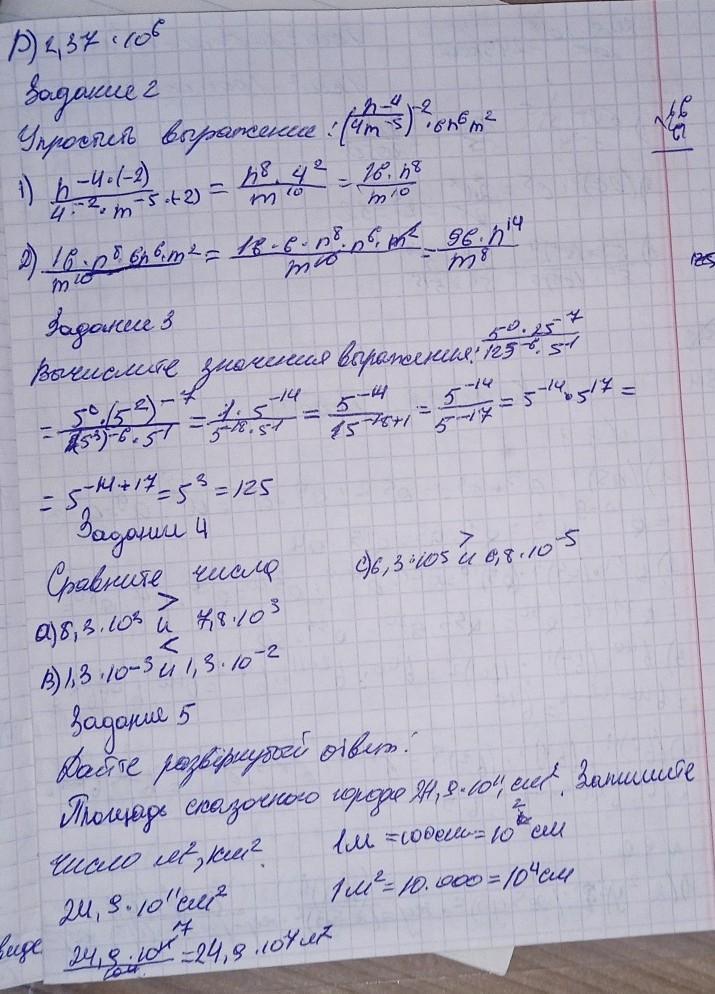 D) 2,37 · 10⁶
Задание 2
Упростить выражение: (n⁻⁴/4m⁻⁵)⁻² · 6n⁶m²
1) n⁻⁴·⁽⁻²⁾/4·⁻²·m⁻⁵·⁽⁻²⁾ = n⁸·4²/m¹⁰ = 16·n⁸/m¹⁰
2) 16·n⁸·6n⁶·m²/m¹⁰ = 16·6·n⁸·n⁶·m²/m¹⁰ = 96·n¹⁴/m⁸
Задание 3
Вычислите значения выражения: 5⁰·25⁻⁷/125⁻⁶·5¹
= 5⁰·(5²)⁻⁷/(5³)⁻⁶·5¹ = 1·5⁻¹⁴/5⁻¹⁸·5¹ = 5⁻¹⁴/5⁻¹⁸⁺¹ = 5⁻¹⁴/5⁻¹⁷ = 5⁻¹⁴·5¹⁷ =
= 5⁻¹⁴⁺¹⁷ = 5³ = 125
Задание 4
Сравните числа
C) 6,3·10⁵ > и 6,8·10⁻⁵
a) 8,3·10³ > и 7,8·10³
B) 1,3·10⁻³ < и 1,3·10⁻²
Задание 5
Дайте развёрнутый ответ:
Площадь сказочного города 24,9·10¹¹ см². Запишите
число м², км².
1м = 100см = 10² см
24,9·10¹¹ см²
1м² = 10.000 = 10⁴ см
= 24,9·10⁷ м²
виде